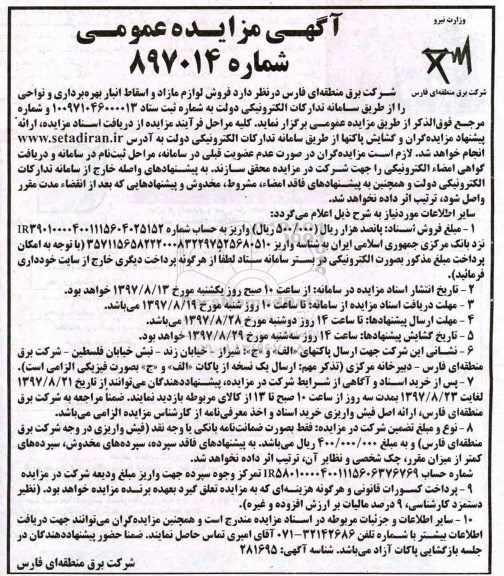 وزارت نیرو
شرکت برق منطقه‌ای فارس
آگهی مزایده عمومی
شماره ۸۹۷۰۱۴
شرکت برق منطقه‌ای فارس درنظر دارد فروش لوازم مازاد و اسقاط انبار بهره‌برداری و نواحی
را از طریق سامانه تدارکات الکترونیکی دولت به شماره ثبت ستاد ۱۰۰۹۷۱۰۴۶۰۰۰۰۱۳ و شماره
مرجع فوق‌الذکر از طریق مزایده عمومی برگزار نماید. کلیه مراحل فرآیند مزایده از دریافت اسناد مزایده، ارائه
پیشنهاد مزایده‌گران و گشایش پاکتها از طریق سامانه تدارکات الکترونیکی دولت به آدرس www.setadiran.ir
انجام خواهد شد. لازم است مزایده‌گران در صورت عدم عضویت قبلی در سامانه، مراحل ثبت‌نام در سامانه و دریافت
گواهی امضاء الکترونیکی را جهت شرکت در مزایده محقق سازند. به پیشنهادهای واصله خارج از سامانه تدارکات
الکترونیکی دولت و همچنین به پیشنهادهای فاقد امضاء، مشروط، مخدوش و پیشنهادهایی که بعد از انقضاء مدت مقرر
واصل شود، ترتیب اثر داده نخواهد شد.
سایر اطلاعات موردنیاز به شرح ذیل اعلام می‌گردد:
۱ - مبلغ فروش اسناد: پانصد هزار ریال (۵۰۰/۰۰۰ ریال) واریز به حساب شماره IR۳۹۰۱۰۰۰۰۴۰۰۱۱۱۵۶۰۴۰۲۵۱۵۲
نزد بانک مرکزی جمهوری اسلامی ایران به شناسه واریز ۳۵۷۱۱۵۶۵۸۲۲۲۰۰۰۸۳۲۲۹۷۵۲۵۶۸۰۵۱۰ (با توجه به امکان
پرداخت مبلغ مذکور بصورت الکترونیکی در بستر سامانه ستاد لطفا از هرگونه پرداخت دیگری خارج از سایت خودداری
فرمائید).
۲ - تاریخ انتشار اسناد مزایده در سامانه: از ساعت ۱۰ صبح روز یکشنبه مورخ ۱۳۹۷/۸/۱۳ خواهد بود.
۳ - مهلت دریافت اسناد مزایده از سامانه: تا ساعت ۱۰ روز شنبه مورخ ۱۳۹۷/۸/۱۹ می‌باشد.
۴ - مهلت ارسال پیشنهادها: تا ساعت ۱۴ روز دوشنبه مورخ ۱۳۹۷/۸/۲۸ می‌باشد.
۵ - تاریخ گشایش پیشنهادها: ساعت ۱۴ روز سه‌شنبه مورخ ۱۳۹۷/۸/۲۹ خواهد بود.
۶ - نشانی این شرکت جهت ارسال پاکتهای «الف و ج»: شیراز - خیابان زند - نبش خیابان فلسطین - شرکت برق
منطقه‌ای فارس - دبیرخانه مرکزی (تذکر مهم: ارسال یک نسخه از پاکات «الف» و «ج» بصورت فیزیکی الزامی است).
۷ - پس از خرید اسناد و آگاهی از شرایط شرکت در مزایده، پیشنهاددهندگان می‌توانند از تاریخ ۱۳۹۷/۸/۲۱
لغایت ۱۳۹۷/۸/۲۳ بمدت سه روز از ساعت ۱۰ صبح تا ۱۳ از کالای مربوطه بازدید نمایند. ضمنا مراجعه به شرکت برق
منطقه‌ای فارس، ارائه اصل فیش واریزی خرید اسناد و اخذ معرفی‌نامه از کارشناس مزایده الزامی می‌باشد.
۸ - نوع و مبلغ تضمین شرکت در مزایده: فقط بصورت ضمانت‌نامه بانکی یا وجه نقد (فیش واریزی در وجه شرکت برق
منطقه‌ای فارس) و به مبلغ ۴۰۰/۰۰۰/۰۰۰ ریال می‌باشد. به پیشنهادهای فاقد سپرده، سپرده‌های مخدوش، سپرده‌های
کمتر از میزان مقرر، چک شخصی و نظایر آن، ترتیب اثر داده نخواهد شد.
شماره حساب IR۵۸۰۱۰۰۰۰۴۰۰۱۱۱۵۶۰۶۳۷۶۷۶۹ تمرکز وجوه سپرده جهت واریز مبلغ ودیعه شرکت در مزایده
۹ - پرداخت کسورات قانونی و هرگونه هزینه‌ای که به مزایده تعلق گیرد بعهده برنده مزایده خواهد بود. (نظیر
دستمزد کارشناسی، ۹ درصد مالیات بر ارزش افزوده و غیره).
۱۰ - سایر اطلاعات و جزئیات مربوطه در اسناد مزایده مندرج است و همچنین مزایده‌گران می‌توانند جهت دریافت
اطلاعات بیشتر با شماره تلفن ۳۲۱۴۲۶۸۶-۰۷۱ آقای امیری تماس حاصل نمایند. ضمنا حضور پیشنهاددهندگان در
جلسه بازگشایی پاکات آزاد می‌باشد. شناسه آگهی: ۲۸۱۶۹۵
شرکت برق منطقه‌ای فارس